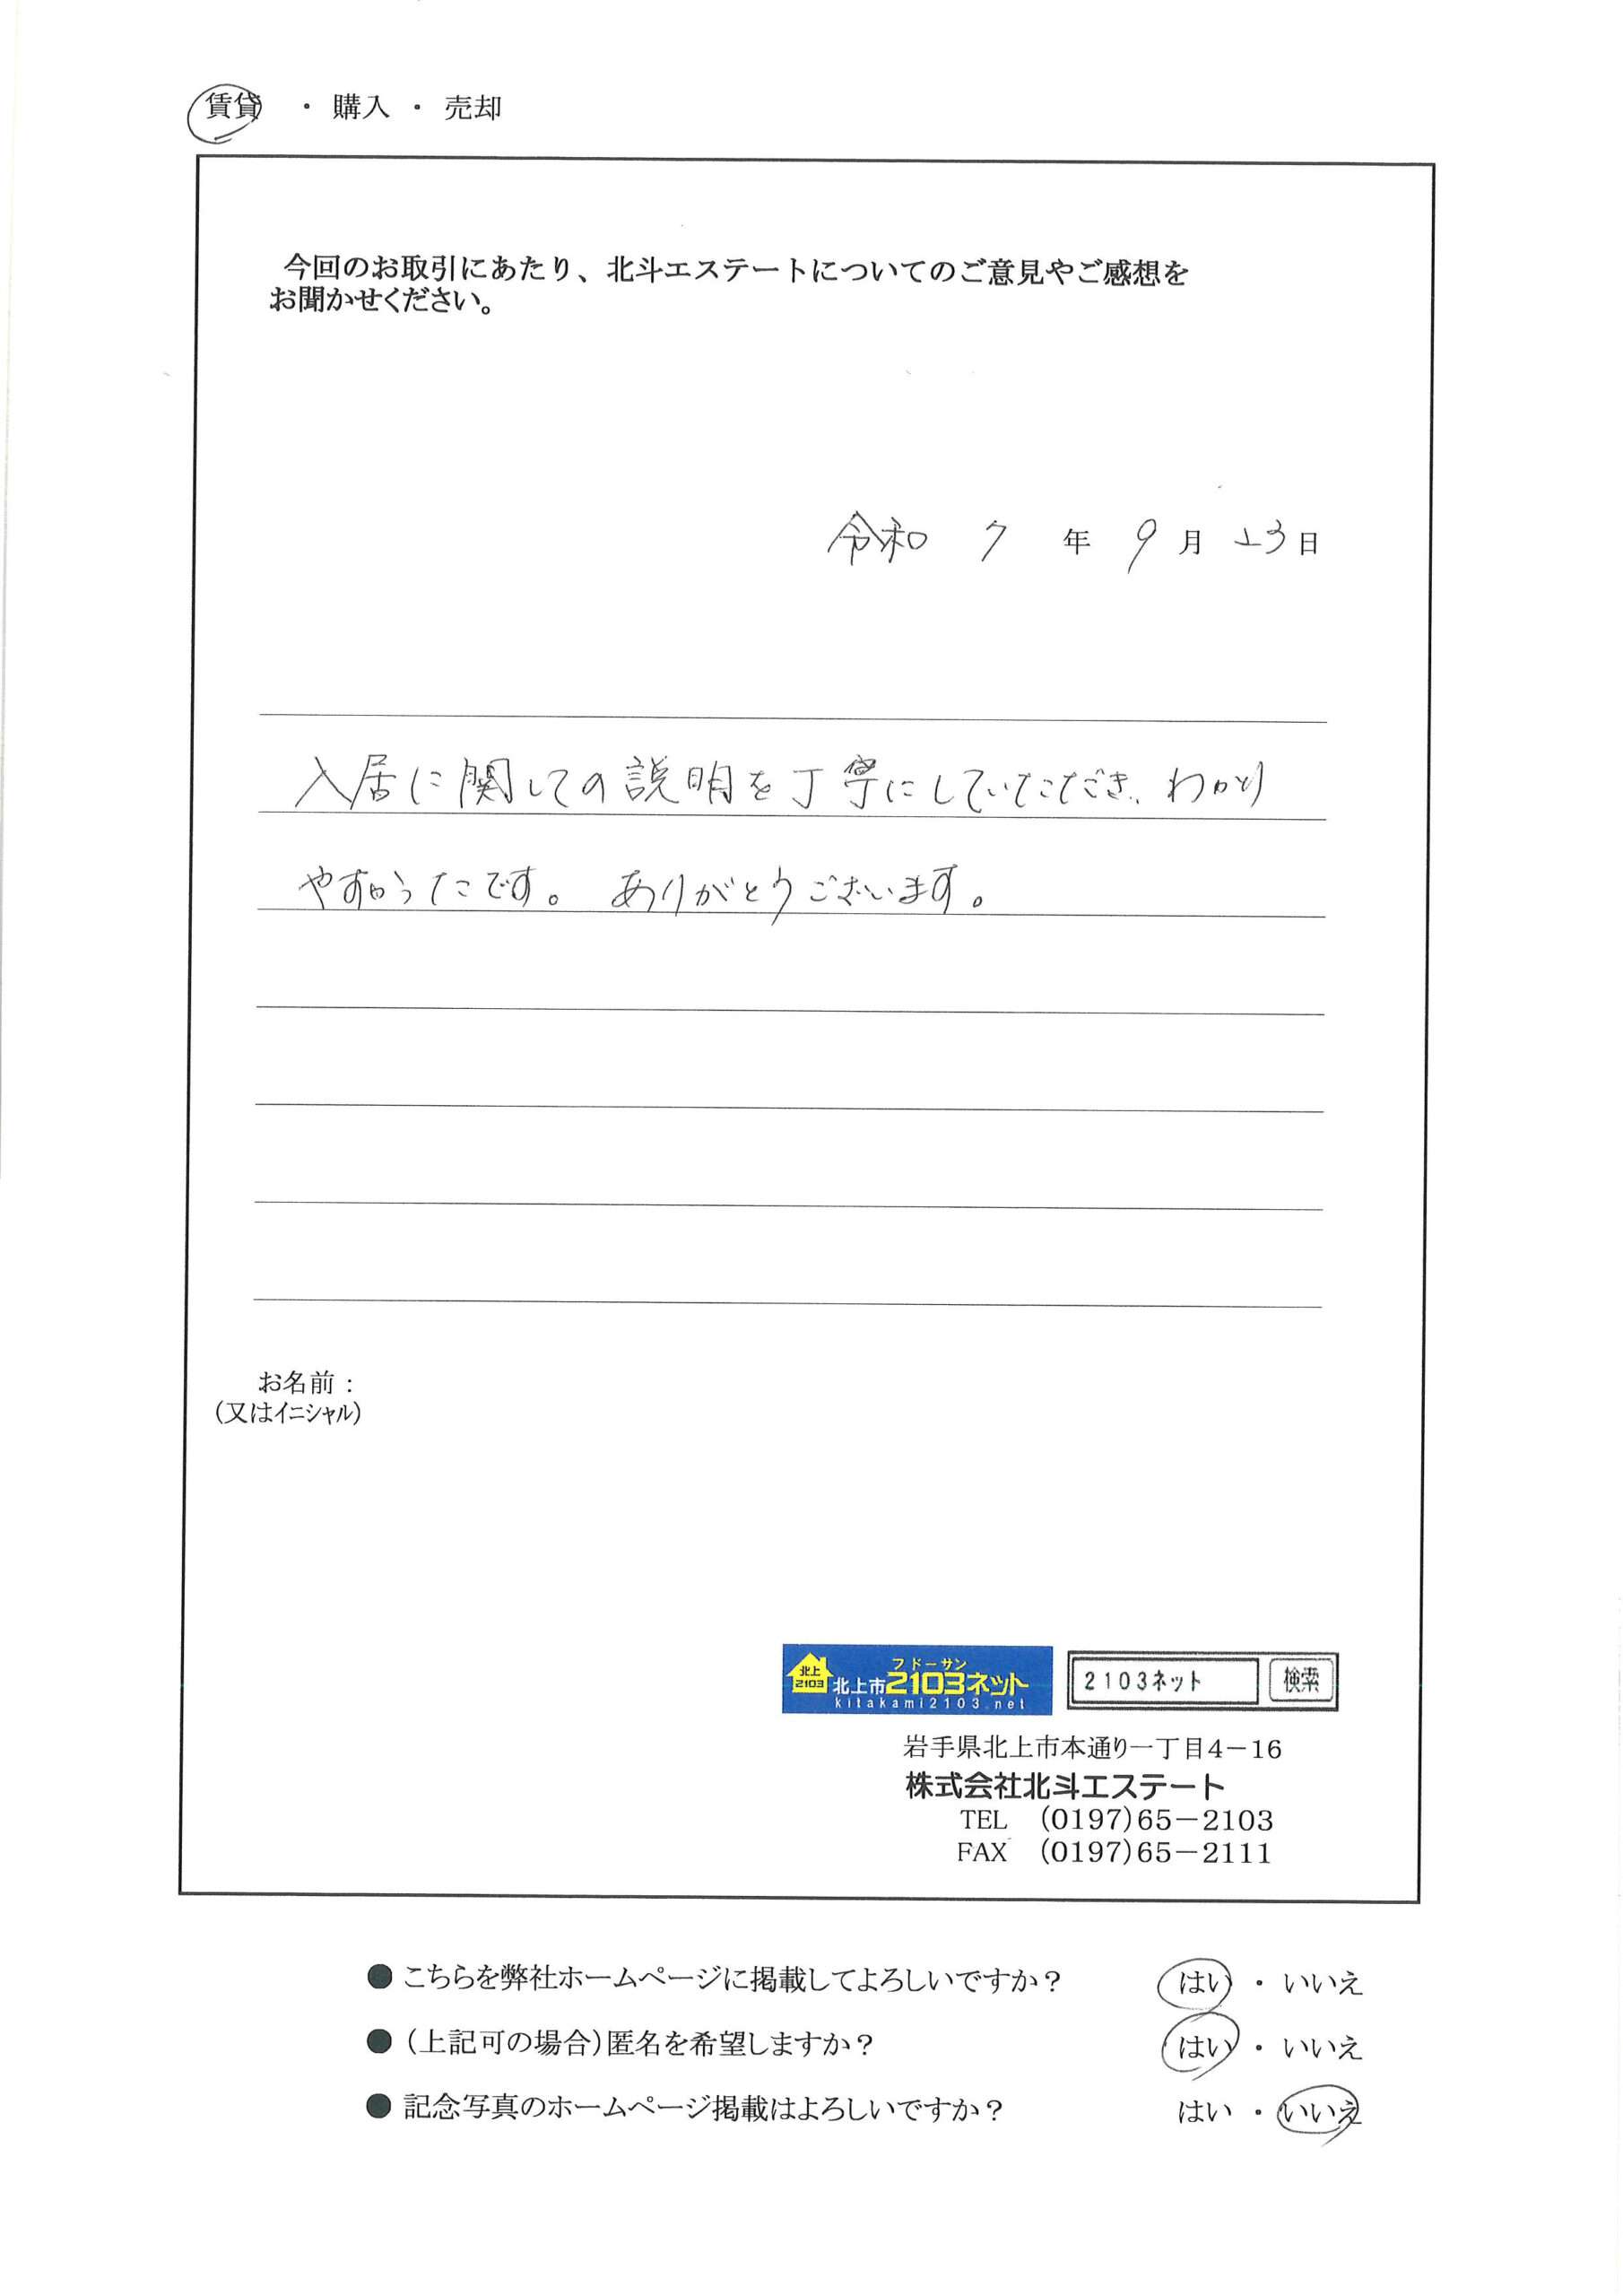 賃貸 ・ 購入 ・ 売却
今回のお取引にあたり、北斗エステートについてのご意見やご感想を
お聞かせください。
令和 7 年 9月 13日
入居に関しての説明を丁寧にしていただき、わかり
やすかったです。 ありがとうございます。
お名前:
(又はイニシャル)
フドーサン
北上 2103 北上市2103ネット
kitakami2103.net
2103ネット 検索
岩手県北上市本通り一丁目4-16
株式会社北斗エステート
TEL (0197)65-2103
FAX (0197)65-2111
●こちらを弊社ホームページに掲載してよろしいですか? はい ・ いいえ
●(上記可の場合)匿名を希望しますか? はい ・ いいえ
●記念写真のホームページ掲載はよろしいですか? はい ・ いいえ